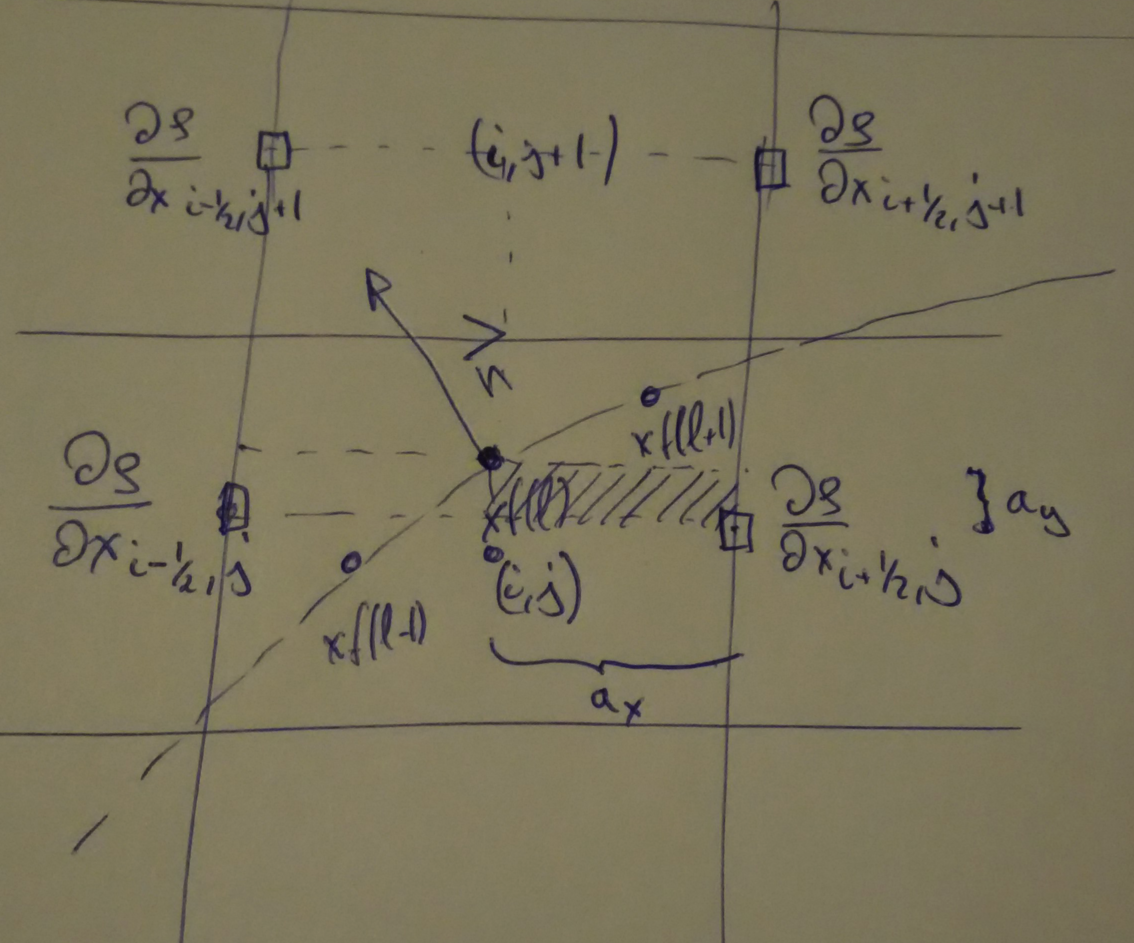 ∂ρ/∂x i-½, j+1
(i, j+1)
∂ρ/∂x i+½, j+1
n
xf(l+1)
∂ρ/∂x i-½, j
xf(l)
∂ρ/∂x i+½, j
} a_y
(i, j)
xf(l-1)
a_x